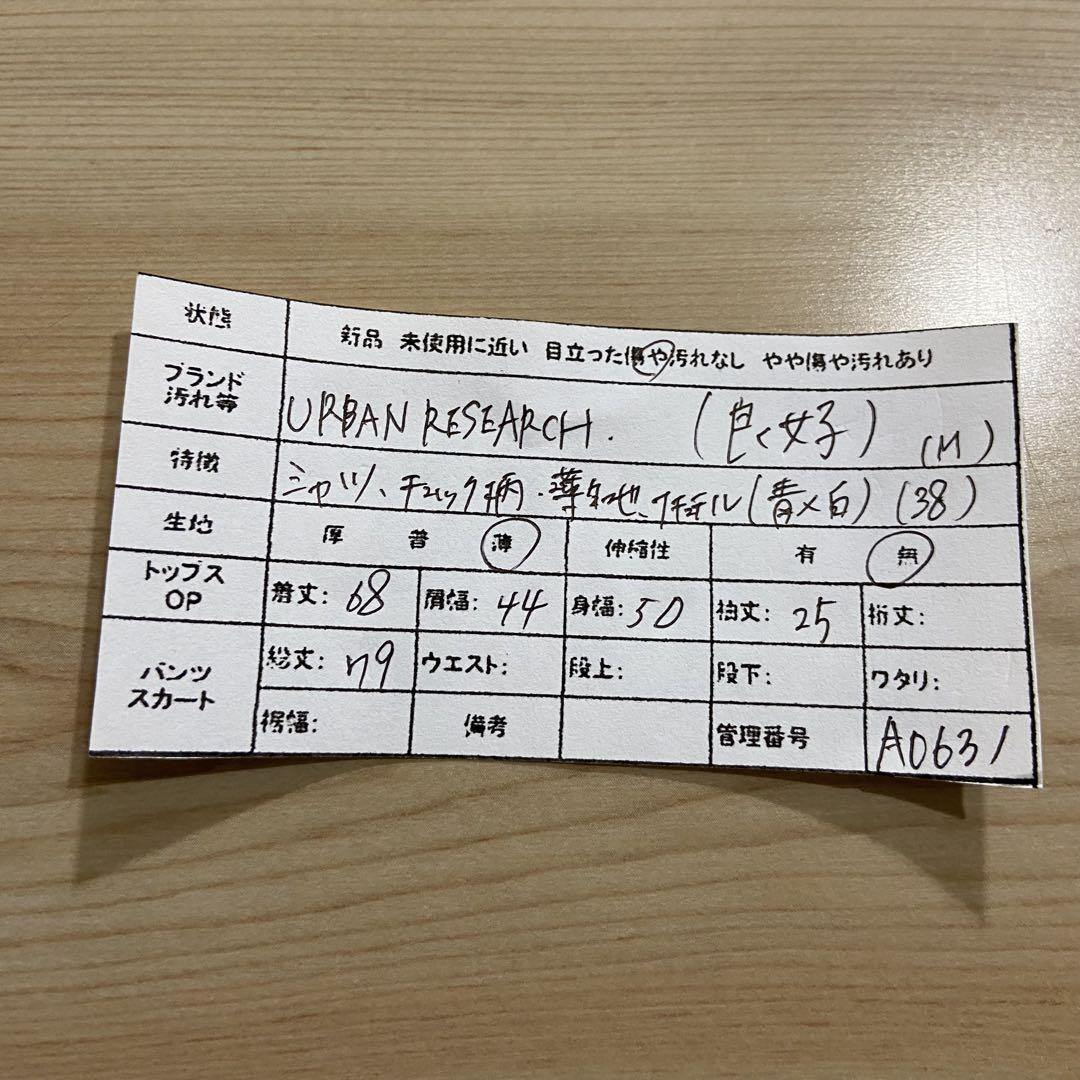 状態 新品 未使用に近い 目立った傷や汚れなし やや傷や汚れあり
ブランド 汚れ等 URBAN RESEARCH. (良く女子) (M)
特徴 シャツ、チェック柄・薄生地、(青×白) (38)
生地 厚 普 薄 伸縮性 有 無
トップス OP 着丈: 68 肩幅: 44 身幅: 50 袖丈: 25 裄丈:
パンツ スカート 総丈: 79 ウエスト: 段上: 段下: ワタリ:
裾幅: 備考 管理番号 A0631